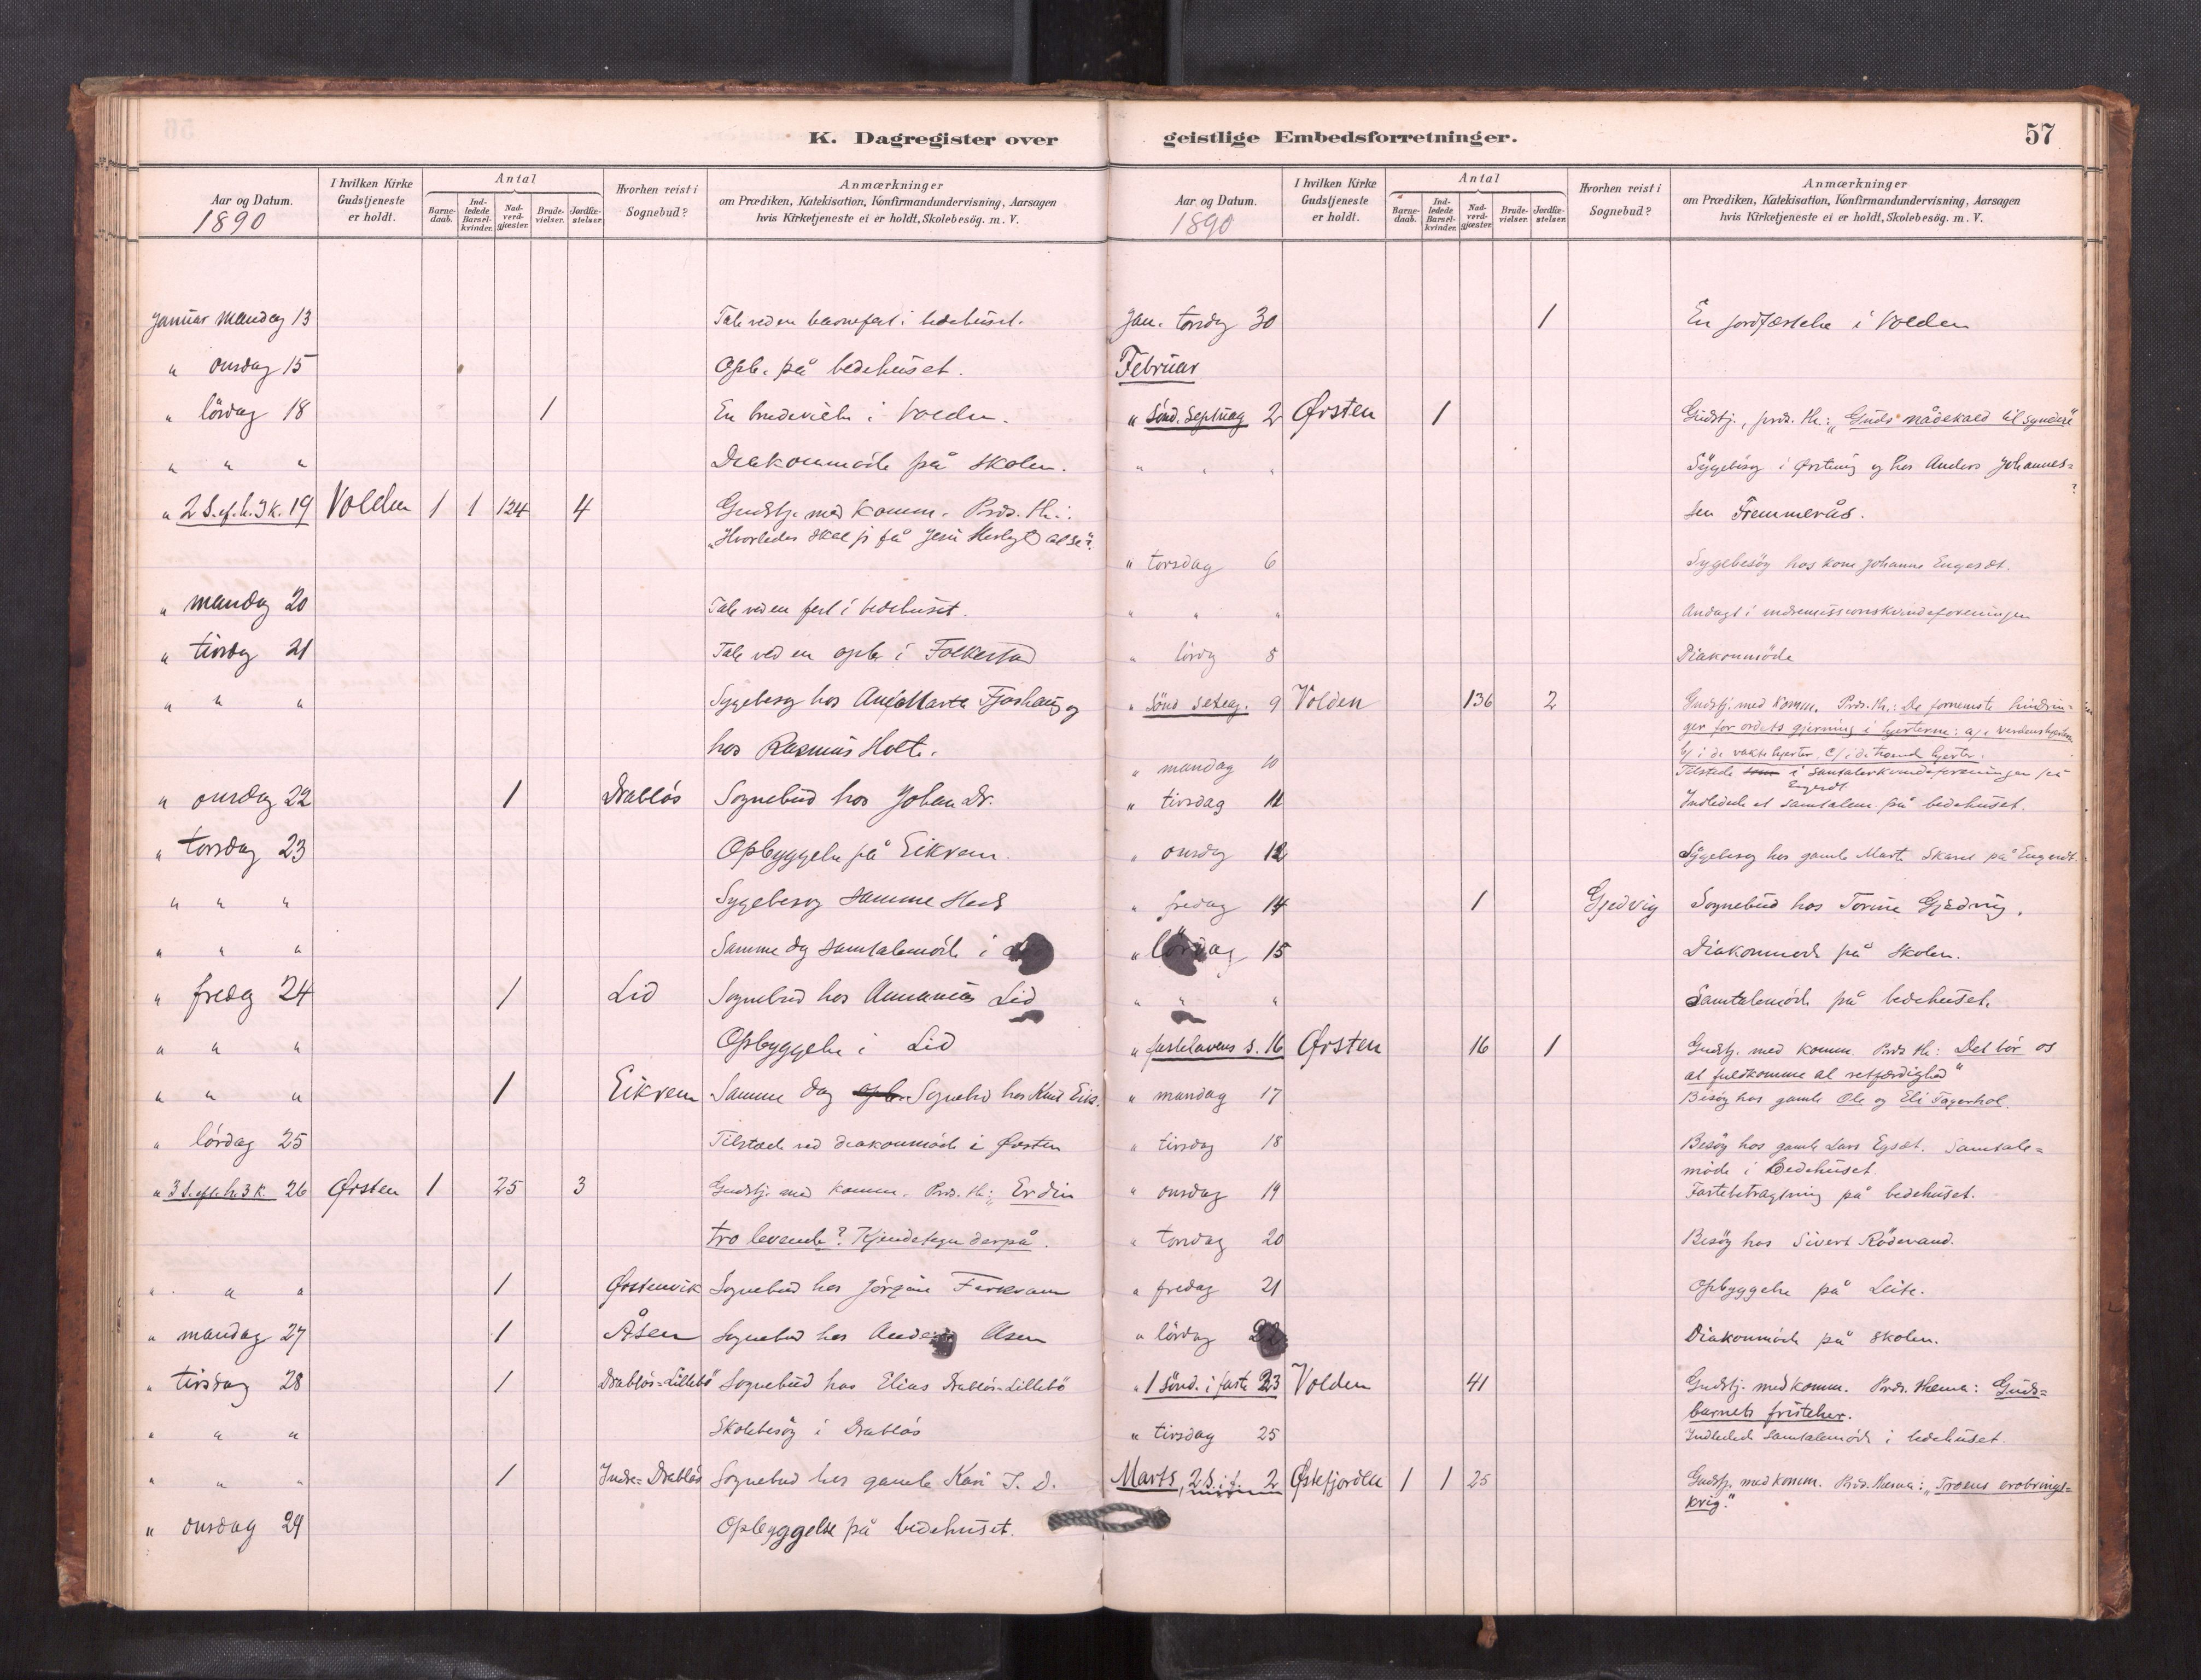 K. Dagregister over
Aar og Datum.
1890
I hvilken Kirke Gudstjeneste er holdt.
Antal
Barne-daab.
Ind-ledede Barsel-kvinder.
Nad-verd-gjæster.
Brude-vielser.
Jordfæ-stelser.
Hvorhen reist i Sognebud?
Anmærkninger
om Prædiken, Katekisation, Konfirmandundervisning, Aarsagen
hvis Kirketjeneste ei er holdt, Skolebesög. m. V.
Januar mandag 13 Tale ved en barnefest i bedehuset.
" onsdag 15 Opb. på bedehuset.
" lördag 18 1 En brudevielse i Volden.
" " " Diakonmöde på skolen.
" 2 S. ef. h. 3 K. 19 Volden 1 1 124 4 Gudstj. med komm. Præd. th.:
"Hvorledes skal vi få Jesu Herlighed at se"?
" mandag 20 Tale ved en fest i bedehuset.
" tirsdag 21 Tale ved en opb. i Folkestad
" " " Sygebesög hos Marta Fjoshaug og
hos Rasmus Holte.
" onsdag 22 1 Drablös Sognebud hos Johan Dr.
" torsdag 23 Opbyggelse på Eikrem.
" " " Sygebesög samme Sted
" " " Samme dag samtalemöde i
" fredag 24 1 Lid Sognebud hos Annanias Lid
" " " Opbyggelse i Lid
" " " 1 Eikrem Samme dag opb. Sognebud hos Knud Eik.
" lördag 25 Tilstede ved diakonmöde i Ørsten
" 3 S. eft. h. 3 K. 26 Ørsten 1 25 3 Gudstj. med komm. Præd. th.: Er din
tro levende? Kjendetegn derpå.
" " " 1 Ørstenvik Sognebud hos Jörgine
" mandag 27 1 Åsen Sognebud hos Anders Åsen
" tirsdag 28 1 Drablös=Lillebö Sognebud hos Elias Drablös=Lillebö
" " " Skolebesög i Drablös
" " " 1 Indre=Drablös Sognebud hos gamle Kari I. D.
" onsdag 29 Opbyggelse på bedehuset.
geistlige Embedsforretninger.
57
Aar og Datum.
1890
I hvilken Kirke Gudstjeneste er holdt.
Antal
Barne-daab.
Ind-ledede Barsel-kvinder.
Nad-verd-gjæster.
Brude-vielser.
Jordfæ-stelser.
Hvorhen reist i Sognebud?
Anmærkninger
om Prædiken, Katekisation, Konfirmandundervisning, Aarsagen
hvis Kirketjeneste ei er holdt, Skolebesög. m. V.
Jan. torsdag 30 1 En jordfæstelse i Volden
Februar
" Sönd. Septuag 2 Ørsten 1 Gudstj., præd. th.: "Guds nådekald til syndere"
" " " Sygebesög i Ørstenvig og hos Anders Johannes=
sen Fremmerås.
" torsdag 6 Sygebesög hos kone Johanne Engesæt.
" " " Andagt i indremissionskvindeforeningen
" lördag 8 Diakonmöde
" Sönd sexag. 9 Volden 136 2 Gudstj. med komm. Præd. th.: De fornemste hindrin=
ger for ordets gjerning i hjerterne: a/ i verdenshjerter
b/ i de vakte hjerter c/ i de troende hjerter.
" mandag 10 Tilstede i Santalerkvindeforeningen på
Engesæt
" tirsdag 11 Indledede et samtalem. på bedehuset.
" onsdag 12 Sygebesög hos gamle Marte på Engesæt.
" fredag 14 1 Gjedvig Sognebud hos Torine Gjedvig.
" lördag 15 Diakonmöde på skolen.
" " " Samtalemöde på bedehuset.
" fastelavens s. 16 Ørsten 16 1 Gudstj. med komm. Præd. th: Det bör os
at fuldkomme al retfærdighed"
" mandag 17 Besög hos gamle Ole og Eli Fagerhol.
" tirsdag 18 Besög hos gamle Lars Egset. Samtale=
möde i Bedehuset.
" onsdag 19 Fastebetragtning på bedehuset.
" torsdag 20 Besög hos Sivert Rödevand.
" fredag 21 Opbyggelse på Leite.
" lördag 22 Diakonmöde på skolen.
" 1 Sönd. i faste 23 Volden 41 Gudstj. med komm. Præd. thema: Guds=
barnets fristelser.
" tirsdag 25 Indledede samtalemöde i bedehuset.
Marts, 2 S. i f. 2 Østefjorden 1 1 25 Gudstj. med komm. Præd. thema: "Troens erobrings=
krig."